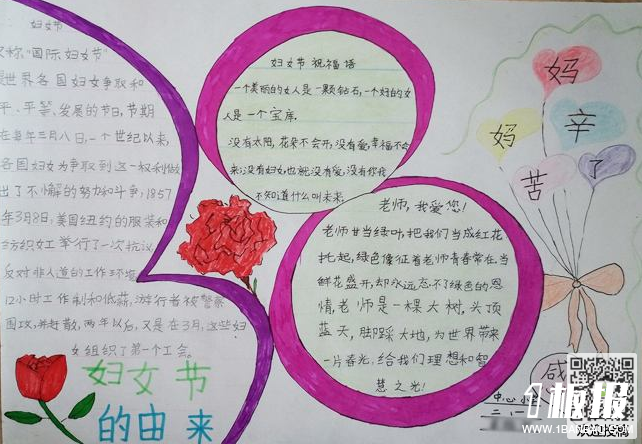 妇女节
又称"国际妇女节"
是世界各国妇女争取和
平、平等、发展的节日,节期
在每年三月八日,一个世纪以来,
各国妇女为争取到这一权利做
出了不懈的努力和斗争;1857
年3月8号,美国纽约的服装和
纺织女工举行了一次抗议
反对非人道的工作环境
12小时工作制和低薪,游行者被警察
围攻,并赶散,两年以后,又是在3月,这些妇
女组织了第一个工会。
妇女节
的由来
妇女节 祝福语
一个美丽的女人是一颗钻石,一个好的女
人是一个宝库。
没有太阳,花朵不会开,没有爱,幸福不会
来;没有妇女,也就没有爱,没有你我
不知道什么叫未来;
老师,我爱您!
老师甘当绿叶,把我们当成红花
托起,绿色像征着老师青春常在,当
鲜花盛开,却永远忘不了绿色的恩
情,老师是一棵大树,头顶
蓝天,脚踩大地,为世界带来
一片春光,给我们理想和智
慧之光!
妈
妈
辛
苦
了
感
中心小
二、一
1板报
WWW.1BANBAO.COM
欢迎投稿